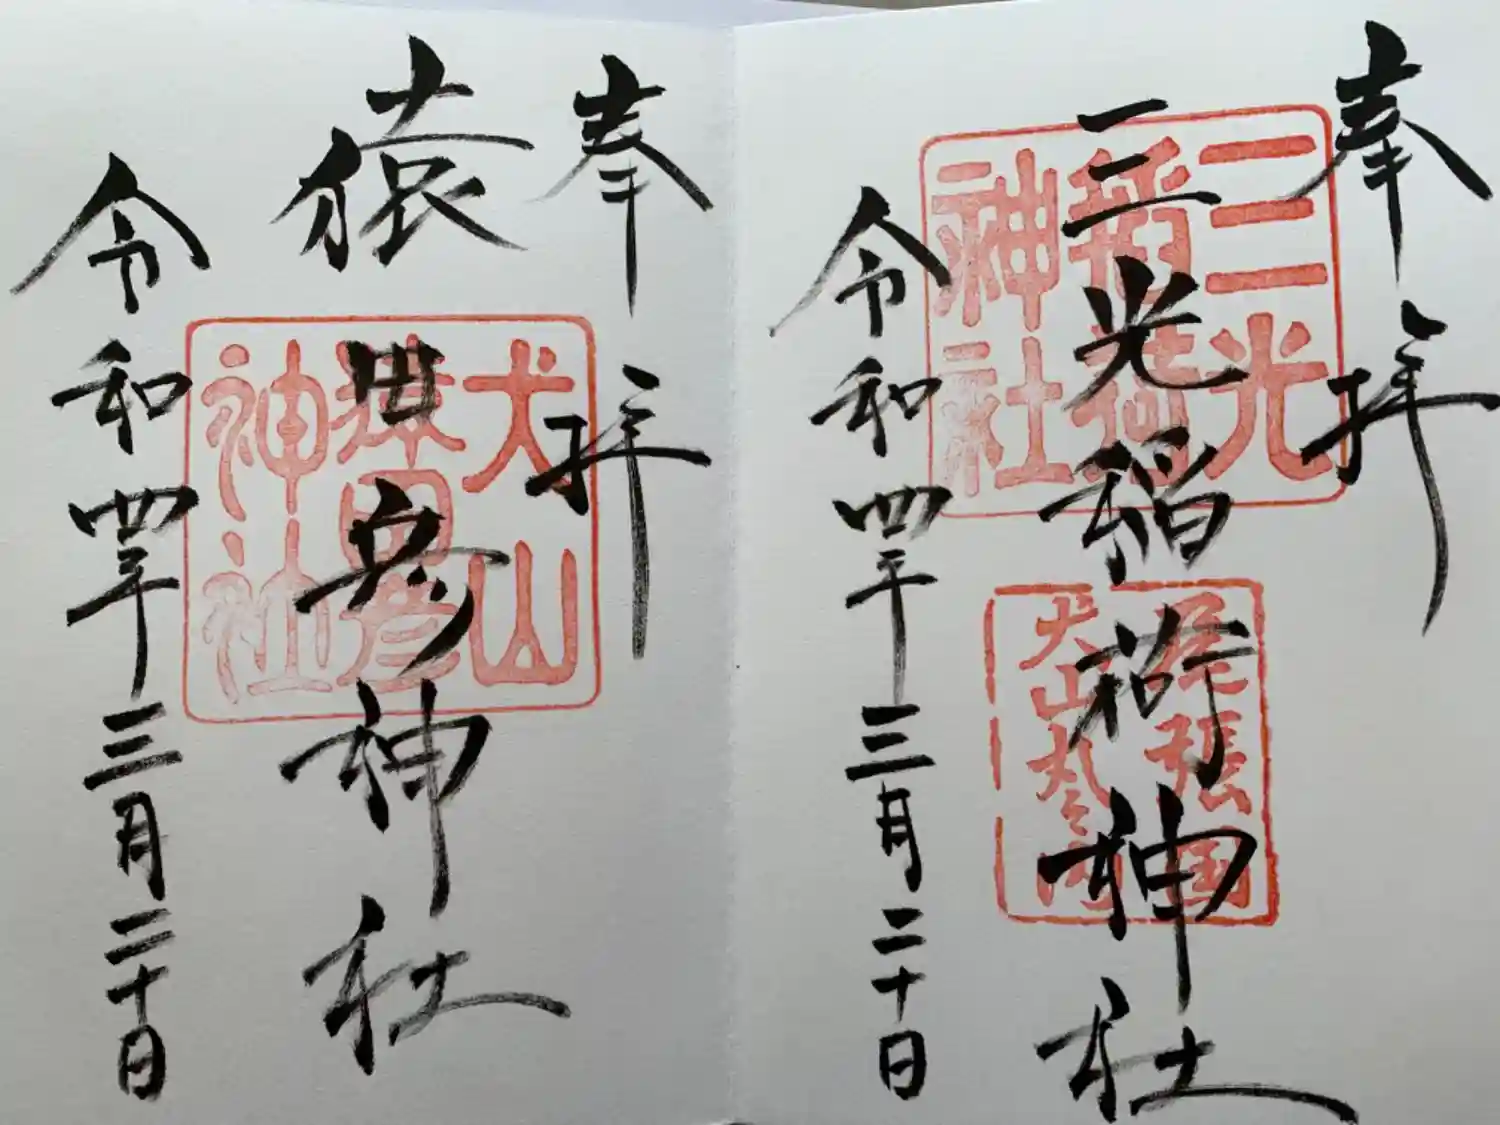 奉拝
三光稲荷神社
令和四年三月二十日
三光
稲荷
神社
尾張国
犬山丸之内
奉拝
猿田彦神社
令和四年三月二十日
犬山
猿田彦
神社